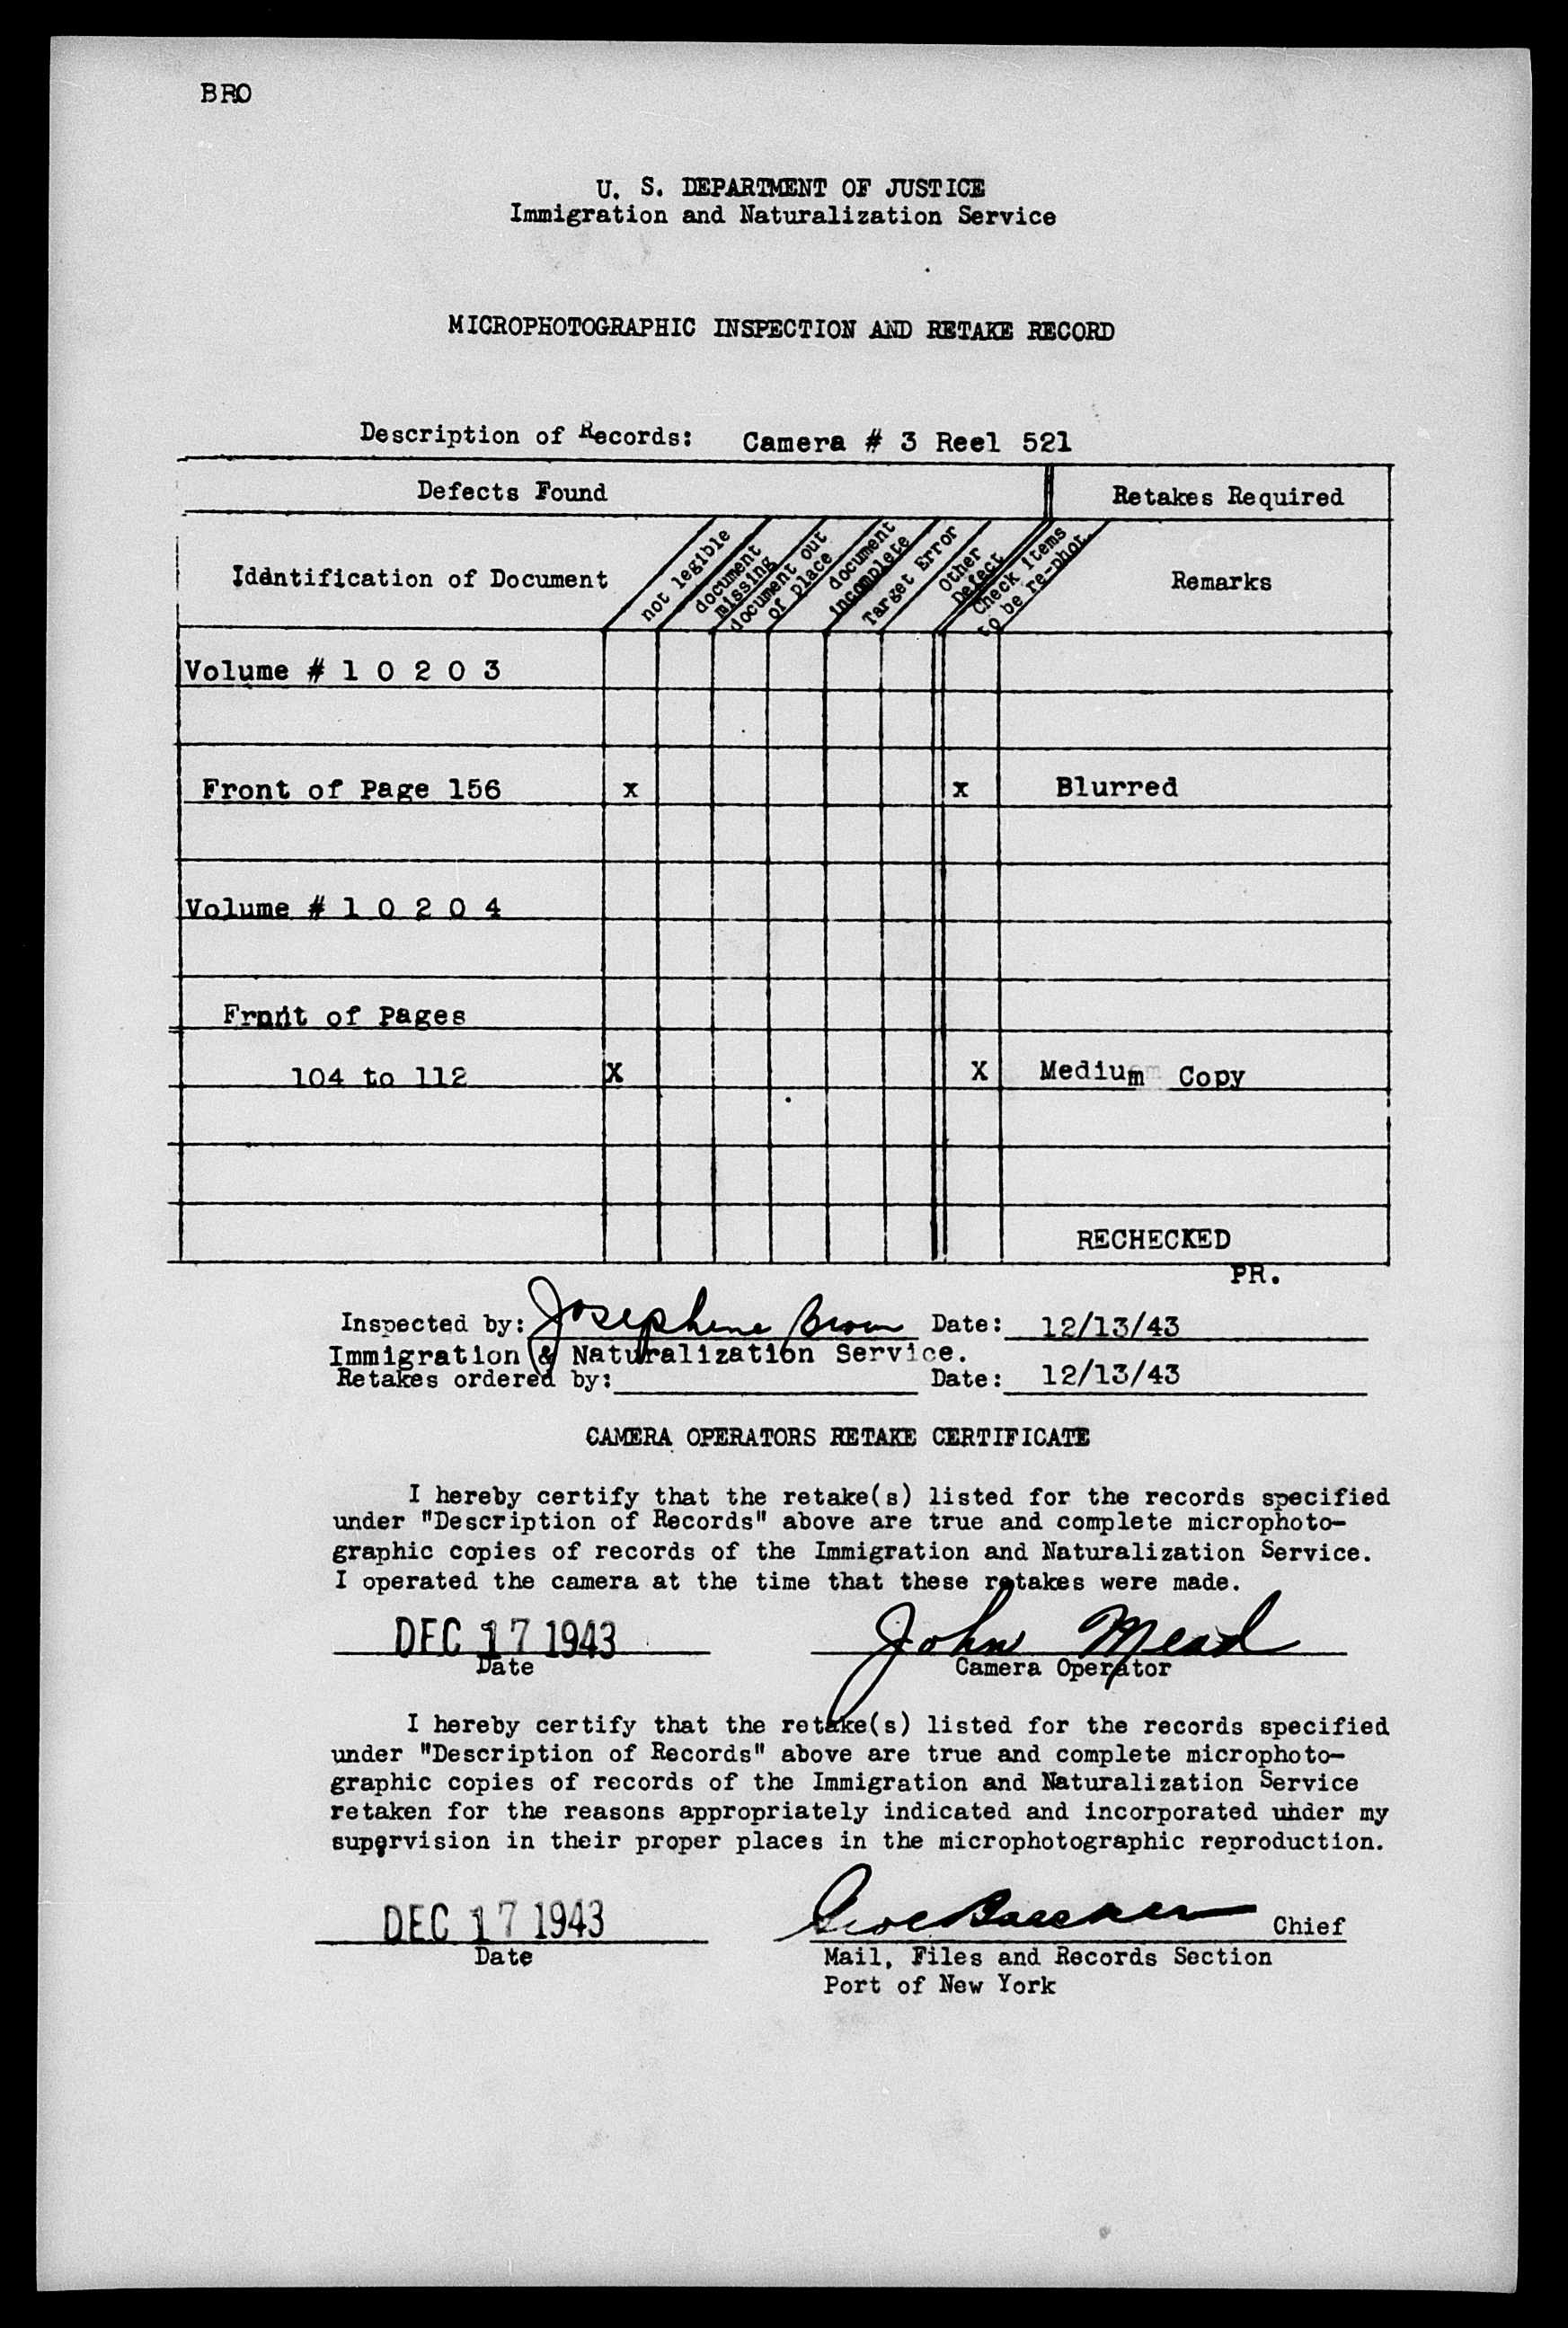 BRO
U. S. DEPARTMENT OF JUSTICE
Immigration and Naturalization Service
MICROPHOTOGRAPHIC INSPECTION AND RETAKE RECORD
Description of Records: Camera # 3 Reel 521
Defects Found Retakes Required
Identification of Document
not legible
document missing
document out of place
document incomplete
Target Error
Other Defect
Check Items to be re-phot.
Remarks
Volume # 1 0 2 0 3
Front of Page 156 x x Blurred
Volume # 1 0 2 0 4
Front of Pages
104 to 112 X X Medium Copy
RECHECKED
PR.
Inspected by: Josephine Brown Date: 12/13/43
Immigration & Naturalization Service.
Retakes ordered by: Date: 12/13/43
CAMERA OPERATORS RETAKE CERTIFICATE
I hereby certify that the retake(s) listed for the records specified
under "Description of Records" above are true and complete microphoto-
graphic copies of records of the Immigration and Naturalization Service.
I operated the camera at the time that these retakes were made.
DEC 17 1943 John Mead
Date Camera Operator
I hereby certify that the retake(s) listed for the records specified
under "Description of Records" above are true and complete microphoto-
graphic copies of records of the Immigration and Naturalization Service
retaken for the reasons appropriately indicated and incorporated under my
supervision in their proper places in the microphotographic reproduction.
DEC 17 1943 Chief
Date Mail, Files and Records Section
Port of New York